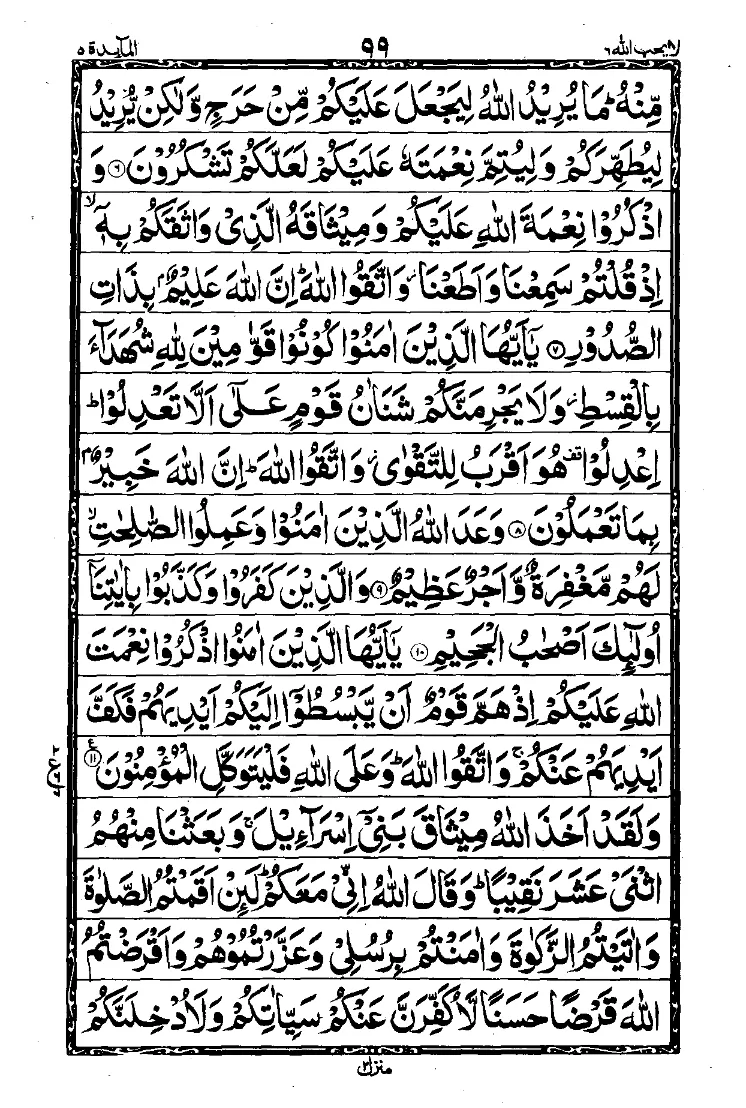 لا يحب الله ٦ ٩٩ المآيدة ٥
مِّنْهُ ؕ مَا يُرِيْدُ اللّٰهُ لِيَجْعَلَ عَلَيْكُمْ مِّنْ حَرَجٍ وَّلٰكِنْ يُّرِيْدُ
لِيُطَهِّرَكُمْ وَلِيُتِمَّ نِعْمَتَهٗ عَلَيْكُمْ لَعَلَّكُمْ تَشْكُرُوْنَ ۝٦ وَ
اذْكُرُوْا نِعْمَةَ اللّٰهِ عَلَيْكُمْ وَمِيْثَاقَهُ الَّذِیْ وَاثَقَكُمْ بِهٖۤ ۙ
اِذْ قُلْتُمْ سَمِعْنَا وَاَطَعْنَا ؗ وَاتَّقُوا اللّٰهَ ؕ اِنَّ اللّٰهَ عَلِيْمٌۢ بِذَاتِ
الصُّدُوْرِ ۝٧ يٰۤاَيُّهَا الَّذِيْنَ اٰمَنُوْا كُوْنُوْا قَوّٰمِيْنَ لِلّٰهِ شُهَدَآءَ
بِالْقِسْطِ ؗ وَلَا يَجْرِمَنَّكُمْ شَنَاٰنُ قَوْمٍ عَلٰۤى اَلَّا تَعْدِلُوْا ؕ
اِعْدِلُوْا ۫ هُوَ اَقْرَبُ لِلتَّقْوٰى ؗ وَاتَّقُوا اللّٰهَ ؕ اِنَّ اللّٰهَ خَبِيْرٌۢ
بِمَا تَعْمَلُوْنَ ۝٨ وَعَدَ اللّٰهُ الَّذِيْنَ اٰمَنُوْا وَعَمِلُوا الصّٰلِحٰتِ ۙ
لَهُمْ مَّغْفِرَةٌ وَّاَجْرٌ عَظِيْمٌ ۝٩ وَالَّذِيْنَ كَفَرُوْا وَكَذَّبُوْا بِاٰيٰتِنَاۤ
اُولٰٓئِكَ اَصْحٰبُ الْجَحِيْمِ ۝١٠ يٰۤاَيُّهَا الَّذِيْنَ اٰمَنُوا اذْكُرُوْا نِعْمَتَ
اللّٰهِ عَلَيْكُمْ اِذْ هَمَّ قَوْمٌ اَنْ يَّبْسُطُوْۤا اِلَيْكُمْ اَيْدِيَهُمْ فَكَفَّ
اَيْدِيَهُمْ عَنْكُمْ ۚ وَاتَّقُوا اللّٰهَ ؕ وَعَلَى اللّٰهِ فَلْيَتَوَكَّلِ الْمُؤْمِنُوْنَ ۝١١ ع
وَلَقَدْ اَخَذَ اللّٰهُ مِيْثَاقَ بَنِیْۤ اِسْرَآءِيْلَ ۚ وَبَعَثْنَا مِنْهُمُ
اثْنَیْ عَشَرَ نَقِيْبًا ؕ وَقَالَ اللّٰهُ اِنِّیْ مَعَكُمْ ؕ لَئِنْ اَقَمْتُمُ الصَّلٰوةَ
وَاٰتَيْتُمُ الزَّكٰوةَ وَاٰمَنْتُمْ بِرُسُلِیْ وَعَزَّرْتُمُوْهُمْ وَاَقْرَضْتُمُ
اللّٰهَ قَرْضًا حَسَنًا لَّاُكَفِّرَنَّ عَنْكُمْ سَيِّاٰتِكُمْ وَلَاُدْخِلَنَّكُمْ
منزل ٢